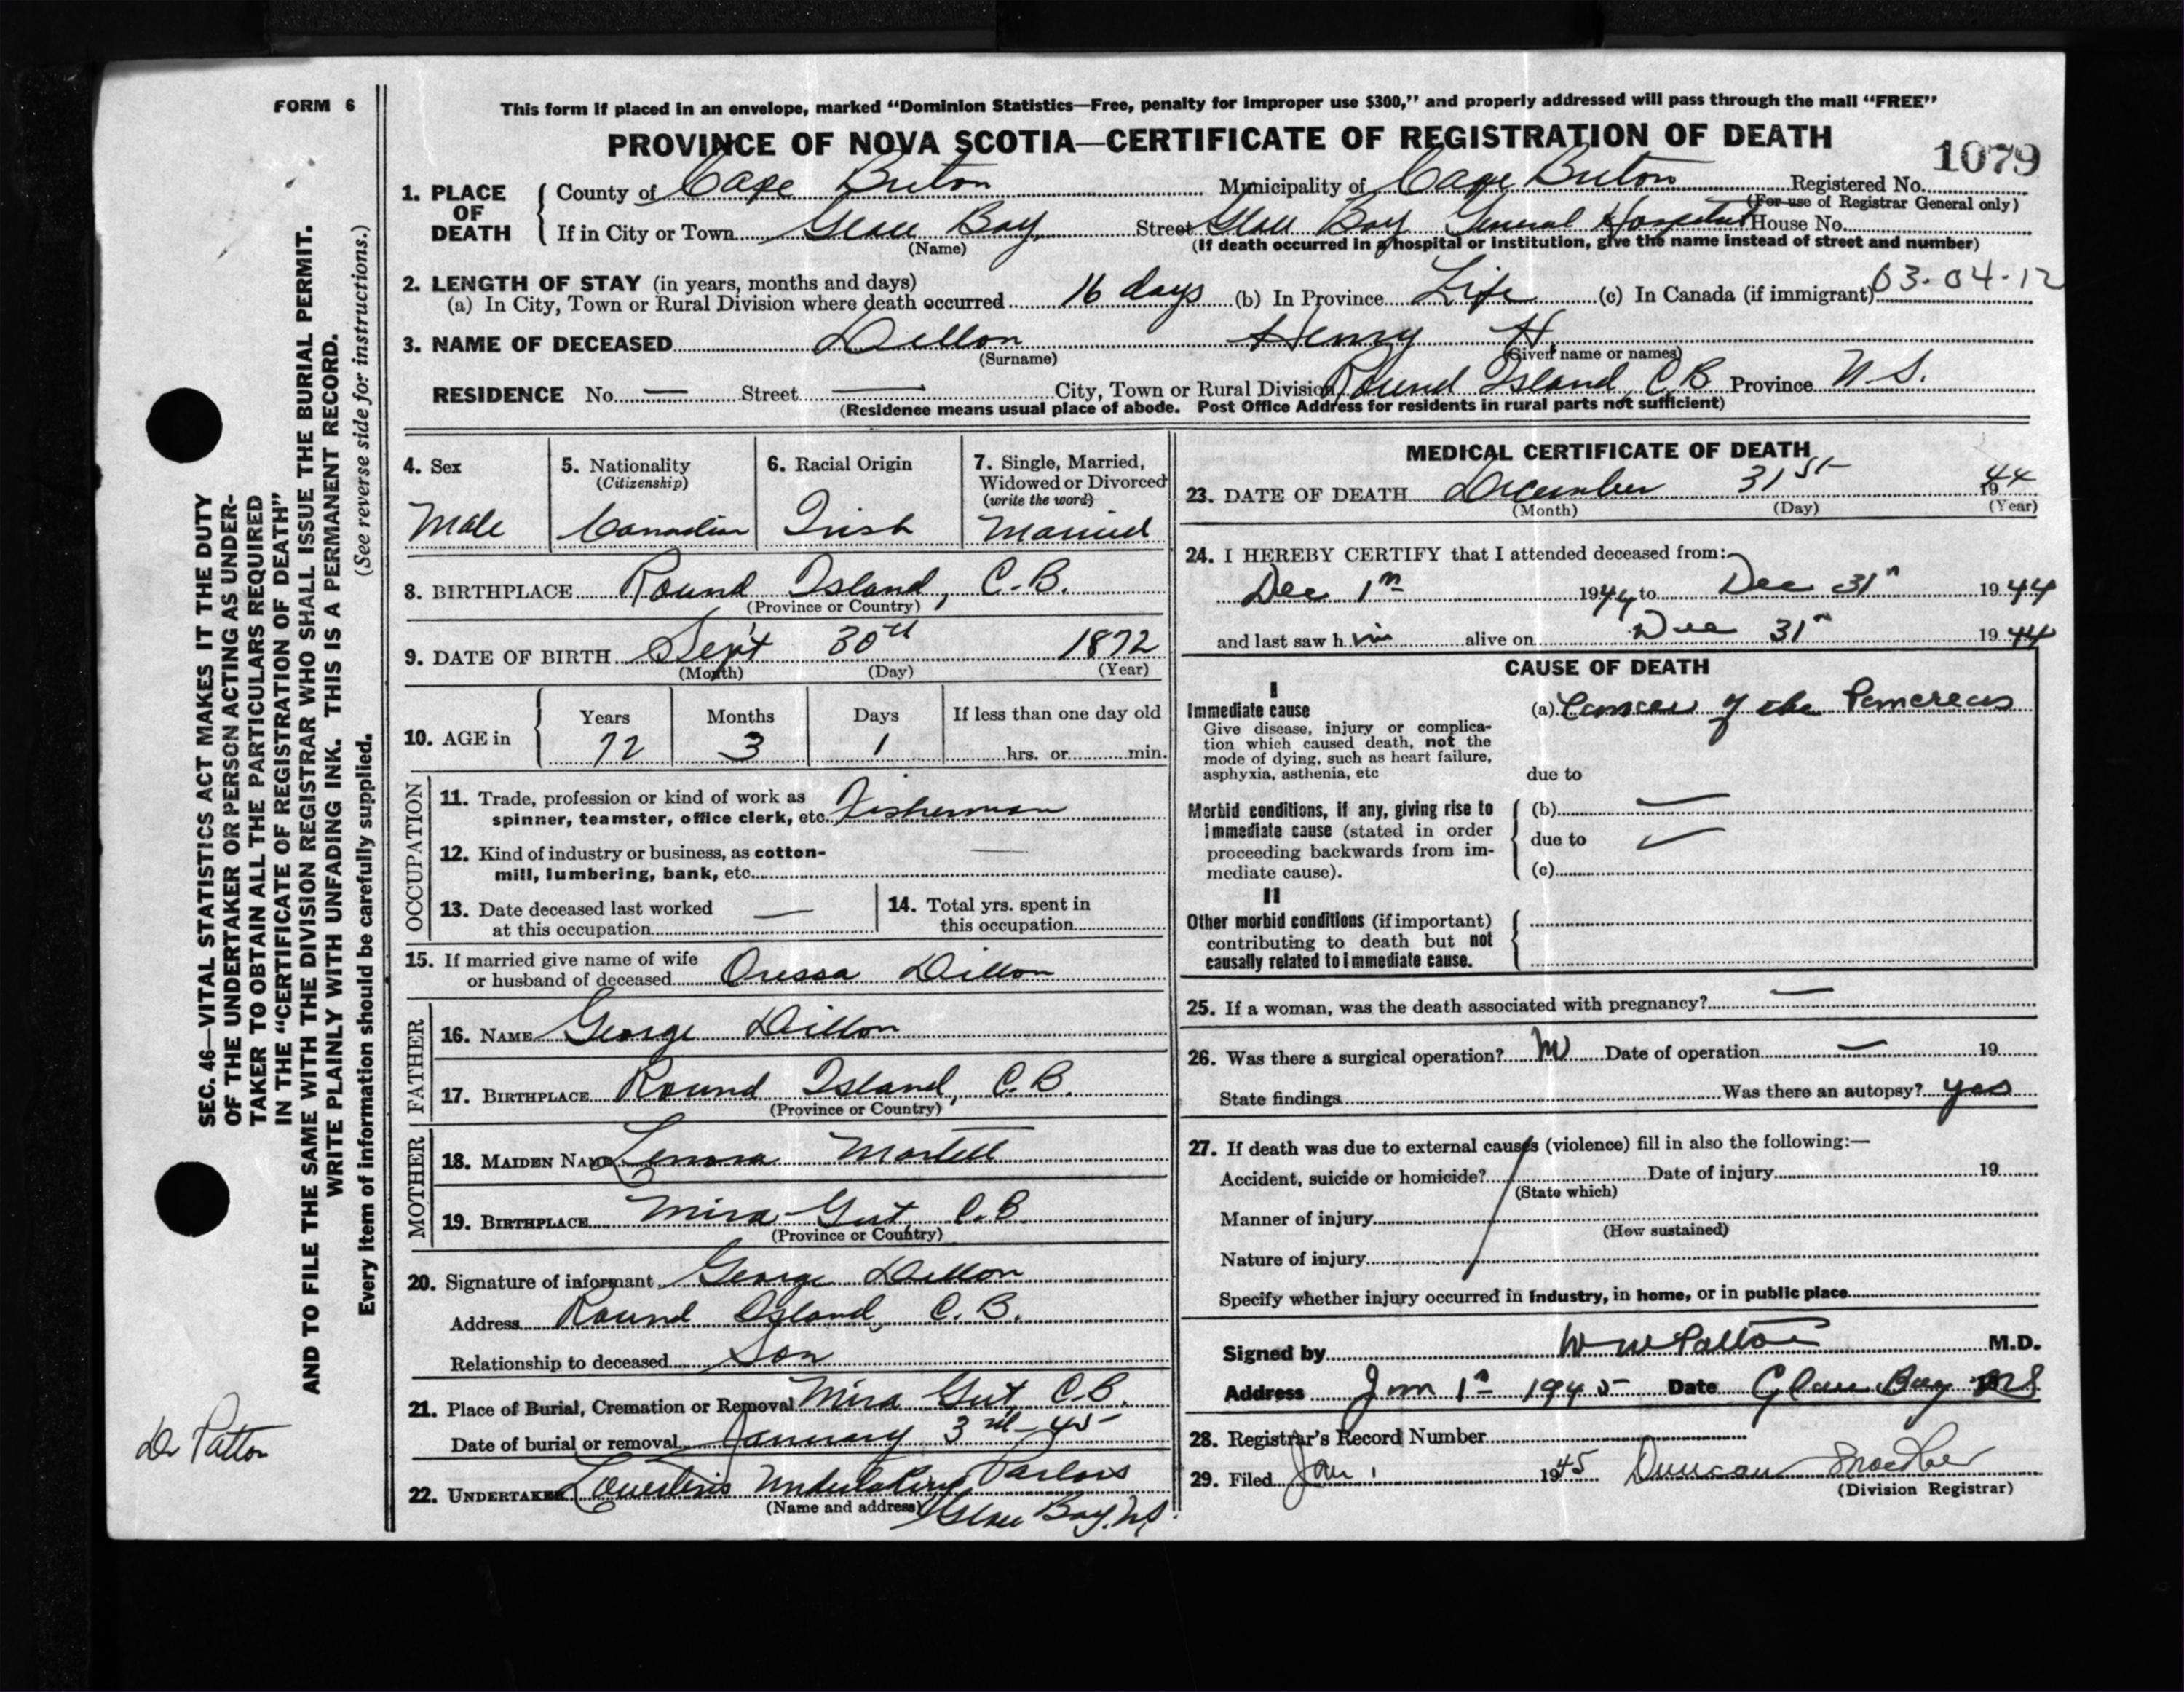 FORM 6
This form if placed in an envelope, marked “Dominion Statistics—Free, penalty for improper use $300,” and properly addressed will pass through the mail “FREE”
PROVINCE OF NOVA SCOTIA—CERTIFICATE OF REGISTRATION OF DEATH
1079
1. PLACE OF DEATH
County of Cape Breton Municipality of Cape Breton Registered No.
(For use of Registrar General only)
If in City or Town Glace Bay Street Glace Bay General Hospital House No.
(Name) (If death occurred in a hospital or institution, give the name instead of street and number)
2. LENGTH OF STAY (in years, months and days)
(a) In City, Town or Rural Division where death occurred 16 days (b) In Province Life (c) In Canada (if immigrant) 03-04-12
3. NAME OF DECEASED Dillon Henry H.
(Surname) (Given name or names)
RESIDENCE No. — Street — City, Town or Rural Division Round Island, C.B Province N.S.
(Residence means usual place of abode. Post Office Address for residents in rural parts not sufficient)
4. Sex
Male
5. Nationality
(Citizenship)
Canadian
6. Racial Origin
Irish
7. Single, Married,
Widowed or Divorced
(write the word)
Married
8. BIRTHPLACE Round Island, C.B.
(Province or Country)
9. DATE OF BIRTH Sep't 30th 1872
(Month) (Day) (Year)
10. AGE in
Years Months Days If less than one day old
72 3 1 hrs. or min.
OCCUPATION
11. Trade, profession or kind of work as
spinner, teamster, office clerk, etc. Fisherman
12. Kind of industry or business, as cotton-
mill, lumbering, bank, etc. —
13. Date deceased last worked
at this occupation —
14. Total yrs. spent in
this occupation
15. If married give name of wife
or husband of deceased Oressa Dillon
FATHER
16. NAME George Dillon
17. BIRTHPLACE Round Island, C.B.
(Province or Country)
MOTHER
18. MAIDEN NAME Lenora Martell
19. BIRTHPLACE Mira Gut, C.B
(Province or Country)
20. Signature of informant George Dillon
Address Round Island, C.B.
Relationship to deceased Son
21. Place of Burial, Cremation or Removal Mira Gut, C.B.
Date of burial or removal January 3rd - 45
22. UNDERTAKER Undertaking Parlors
(Name and address) Glace Bay, N.S.
MEDICAL CERTIFICATE OF DEATH
23. DATE OF DEATH December 31st 1944
(Month) (Day) (Year)
24. I HEREBY CERTIFY that I attended deceased from:
Dec 1st 1944 to Dec 31st 1944
and last saw him alive on Dec 31st 1944
CAUSE OF DEATH
I
Immediate cause
Give disease, injury or complica-
tion which caused death, not the
mode of dying, such as heart failure,
asphyxia, asthenia, etc
(a) Cancer of the Pancreas
due to
Morbid conditions, if any, giving rise to
immediate cause (stated in order
proceeding backwards from im-
mediate cause).
(b) —
due to —
(c)
II
Other morbid conditions (if important)
contributing to death but not
causally related to immediate cause.
25. If a woman, was the death associated with pregnancy? —
26. Was there a surgical operation? No Date of operation — 19
State findings Was there an autopsy? yes
27. If death was due to external causes (violence) fill in also the following:—
Accident, suicide or homicide? Date of injury 19
(State which)
Manner of injury
(How sustained)
Nature of injury
Specify whether injury occurred in industry, in home, or in public place
Signed by W W Patton M.D.
Address Jan 1st 1945 Date Glace Bay NS
28. Registrar's Record Number
29. Filed Jan 1 1945 Duncan
(Division Registrar)
SEC. 46—VITAL STATISTICS ACT MAKES IT THE DUTY
OF THE UNDERTAKER OR PERSON ACTING AS UNDER-
TAKER TO OBTAIN ALL THE PARTICULARS REQUIRED
IN THE “CERTIFICATE OF REGISTRATION OF DEATH”
AND TO FILE THE SAME WITH THE DIVISION REGISTRAR WHO SHALL ISSUE THE BURIAL PERMIT.
WRITE PLAINLY WITH UNFADING INK. THIS IS A PERMANENT RECORD.
Every item of information should be carefully supplied. (See reverse side for instructions.)
Dr Patton